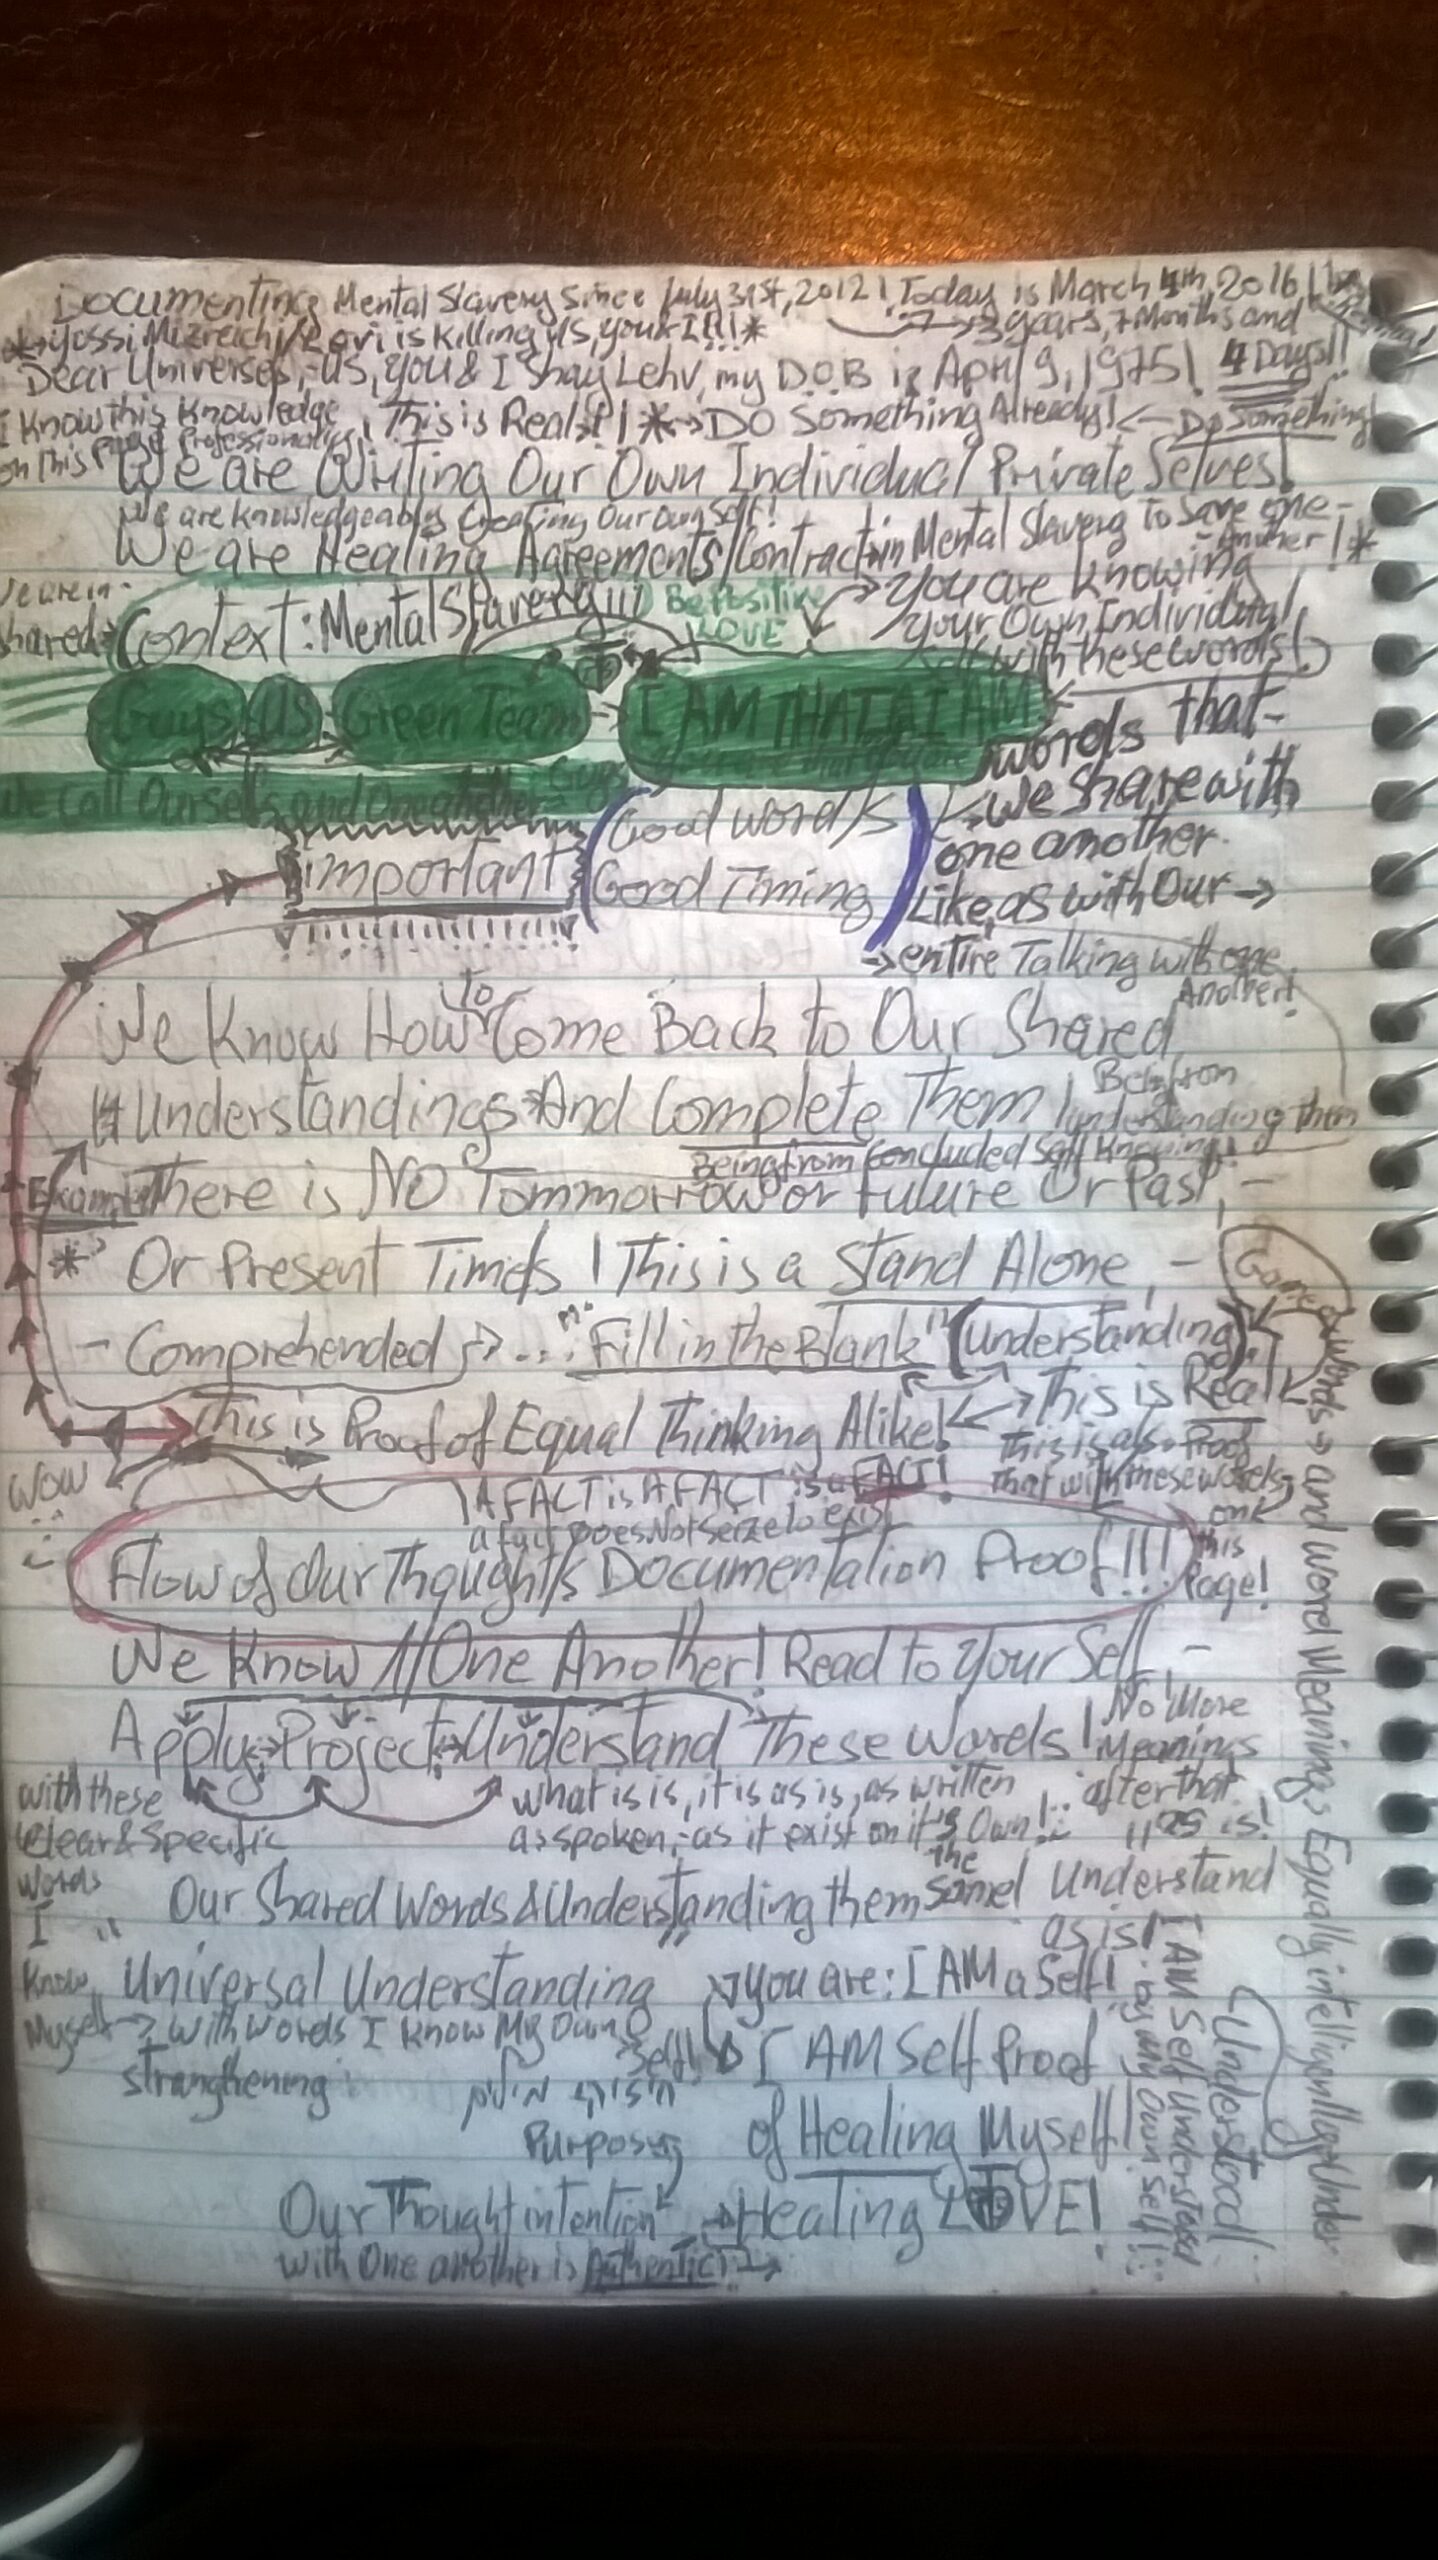 Documenting Mental Slavery Since July 31st, 2012! Today is March 4th, 2016!
Yossi Mizrachi/Levi is Killing US, you & I!!!* 3 years, 7 Months and
Dear Universes, US, You & I Shay Lehv, my D.O.B is April 9, 1975! 4 Days!!
I Know this Knowledge This is Real! * DO Something Already! ← Do Something!
on this Page Professionally
We are Writing Our Own Individual Private Selves!
We are knowledgeably Creating Our Own Self!
We are Healing Agreements/Contract in Mental Slavery To Save one-
Another!*
We are in
shared Context: Mental Slavery!!!
Be Positive
LOVE
You are Knowing
your Own Individual
Self with these words!
Guys US Green Team I AM THAT I AM
words that-
we share with
one another.
Like, as with Our →
→ entire Talking with one
Another!
We Call Ourselfs and One another = Guys
Important
Good word/s
Good Timing
We Know How to Come Back to Our Shared
Understandings And Complete Them!
Being from
understanding them
Being from Concluded Self Knowing!
Example
There is NO Tommorrow or Future Or Past, -
* Or Present Times! This is a Stand Alone, -
- Comprehended → ... "Fill in the Blank" (Understanding)
This is Proof of Equal Thinking Alike!
This is Real
This is also Proof
that with these words
on
this
Page!
Wow
A FACT is A FACT is a FACT!
a fact Does Not Seize to exist
Flow of Our Thought/s Documentation Proof!!!
We Know //One Another! Read to Your Self, -
Apply → Project → Understand These Words!
No More
Meanings
after that
"as is!
with these
Clear & Specific
words
I
Know
Myself →
what is is, it is as is, as written
as spoken, as it exist on it's Own!
Our Shared Words & Understanding them the Same! Understand
as is!
Universal Understanding
with words I Know My Own
Self!
strangthening
חיזוקי מילים
You are: I AM a Self!
I AM Self Proof
of Healing Myself!
Purpose
Our Thought intention → Healing LOVE!
with One another is Authentic! →
I AM Self Understood
by my Own Self!
Understood!
words → and word Meanings Equally intelligently Under